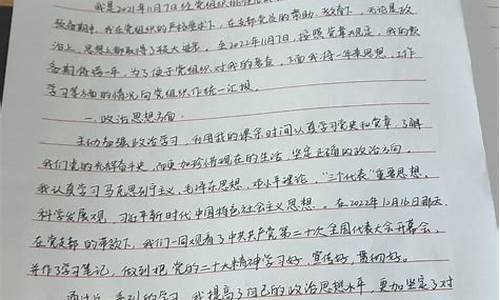 我是2021年11月7日经党组织批准
致备期中,我在党组织的严格要求下,在支部党员的帮助、教育下,无论是政
治上、思想上都取得了较大进步。至2022年11月7日,按照党章规定,我的
备期将满一年。为了便于党组织对我的考查,下面我将一年来思想、工作
学习等方面的情况向党组织作统一汇报。
一、政治思想方面。
主动加强政治学习,利用我的课余时间认真学习党史和党章,了解
我们党的光辉奋斗史,从而更加珍惜现在的生活,坚定正确的政治方向。
我认真学习马克思列宁主义、毛泽东思想、邓小平理论、“三个代表”重要思想、
科学发展观、习近平新时代中国特色社会主义思想。在2022年10月16日那天,
在党支部的带领下,我们一同观看了中共共产党第二十次全国代表大会开幕会,
并作了学习笔记,做到把党的二十大精神学习好、宣传好、贯彻好。
通过这一系列的学习,我提高了自己的政治思想水平,更加坚定了对